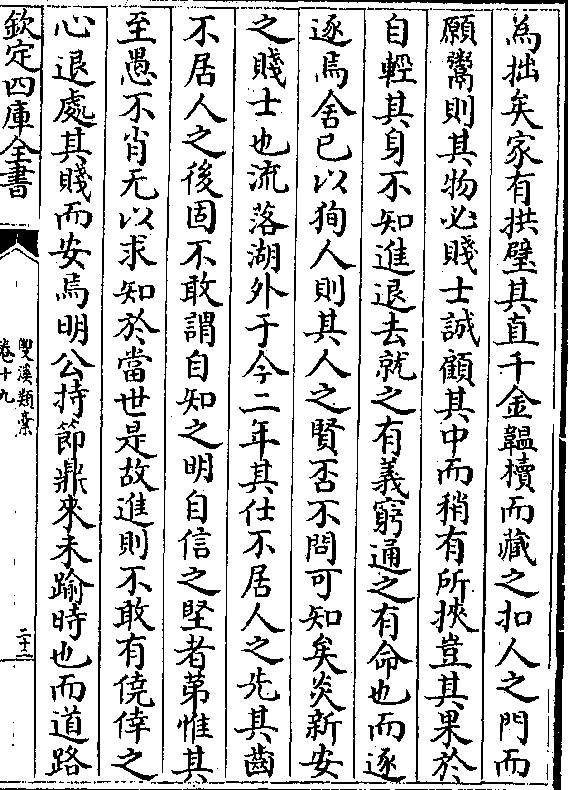 為拙矣家有拱璧其直千金韞櫝而藏之扣人之門而
願鬻則其物必賤士誠顧其中而稍有所挾豈其果於
自輕其身不知進退去就之有義窮通之有命也而逐
逐焉舍已以狥人則其人之賢否不問可知矣炎新安
之賤士也流落湖外于今二年其仕不居人之先其齒
不居人之後固不敢謂自知之明自信之堅者苐惟其
至愚不肖无以求知於當世是故進則不敢有僥倖之
心退處其賤而安焉明公持節鼎來未踰時也而道路
欽定四庫全書
雙溪類藁
卷十九
二十二